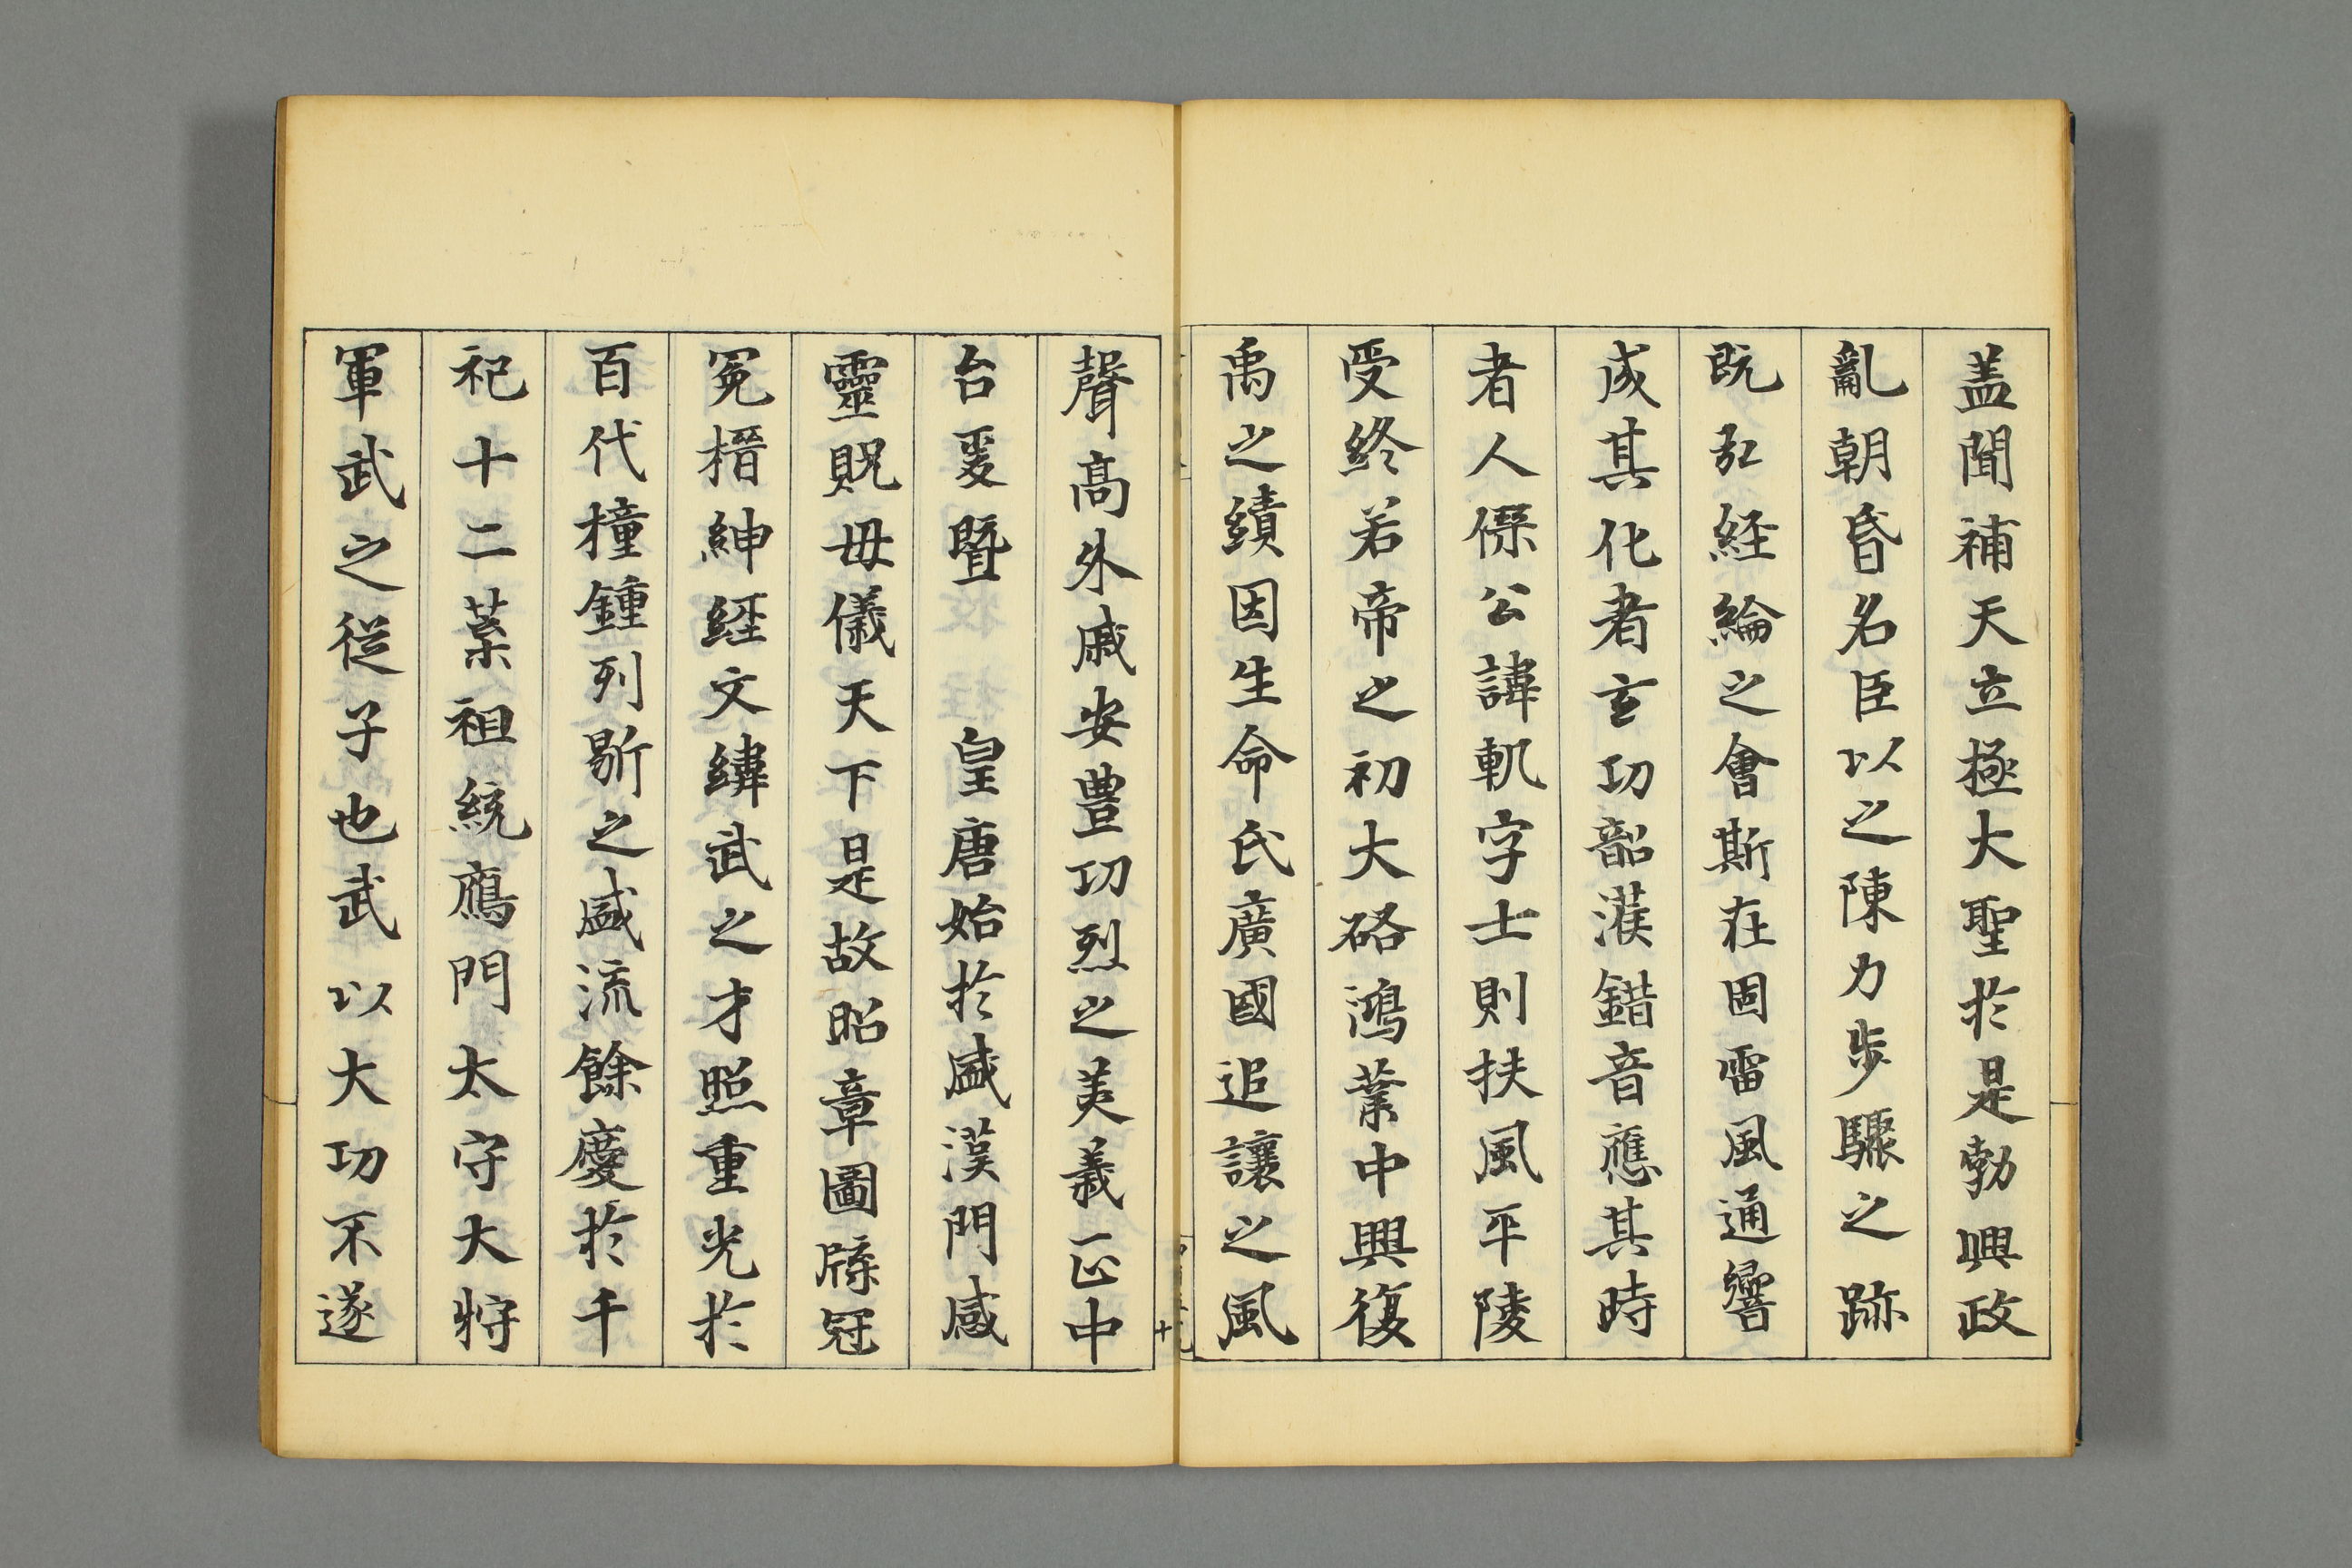 盖聞補天立極大聖於是勃興政
亂朝昏名臣以之陳力步驟之跡
既弘経綸之會斯在固雷風通響
成其化者玄功韶濩錯音應其時
者人傑公諱軌字士則扶風平陵
受終若帝之初大硌鴻業中興復
禹之績因生命氏廣國追讓之風
聲高外戚安豊功烈之美義正中
台爰暨 皇唐始於盛漢門感
靈貺毋儀天下是故昭章圖牒冠
冕搢紳經文緯武之才照重光於
百代橦鍾列鼏之盛流餘慶於千
祀十二葉祖統鴈門太守大將
軍武之從子也武以大功不遂